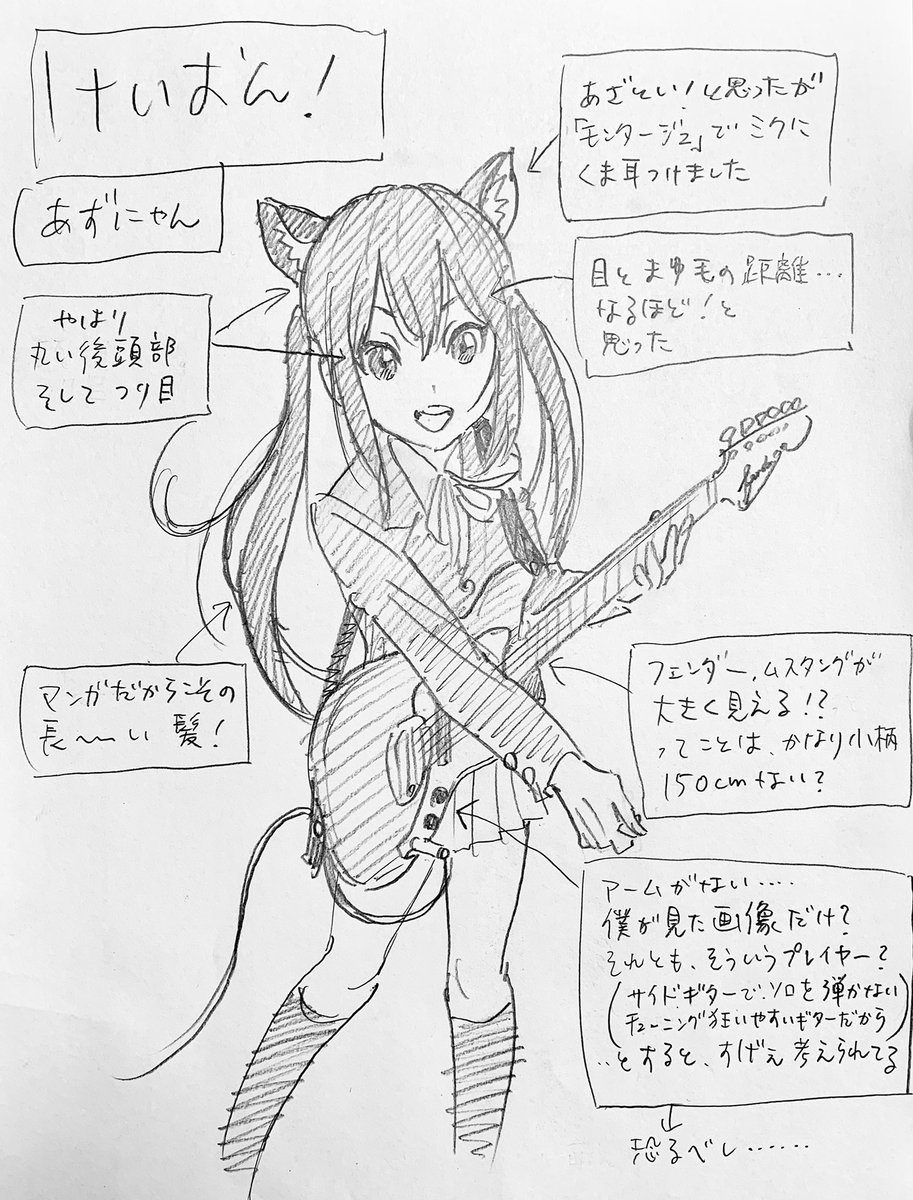 けいおん!
あずにゃん
やはり
丸い後頭部
そして つり目
あざとい!と思ったが
「モンタージュ」で ミクに
くま耳つけました
目と まゆ毛の 距離…
なるほど!と
思った
マンガだからこその
長〜い 髪!
フェンダー、ムスタングが
大きく見える!?
ってことは、かなり小柄
150cmない?
アームがない‥‥
僕が見た画像だけ?
それとも、そういうプレイヤー?
(サイドギターで、ソロを弾かない
チューニング狂いやすいギターだから)
‥とすると、すげぇ 考えられてる
恐るべし‥‥‥
Fender